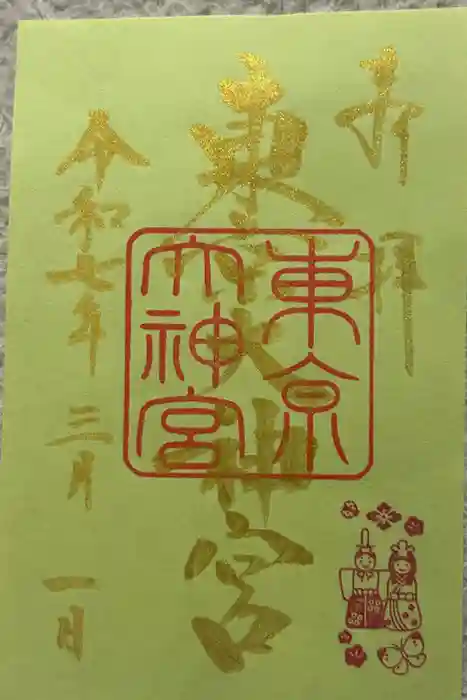 奉拝
東京大神宮
東京
大神宮
令和七年 三月 一日